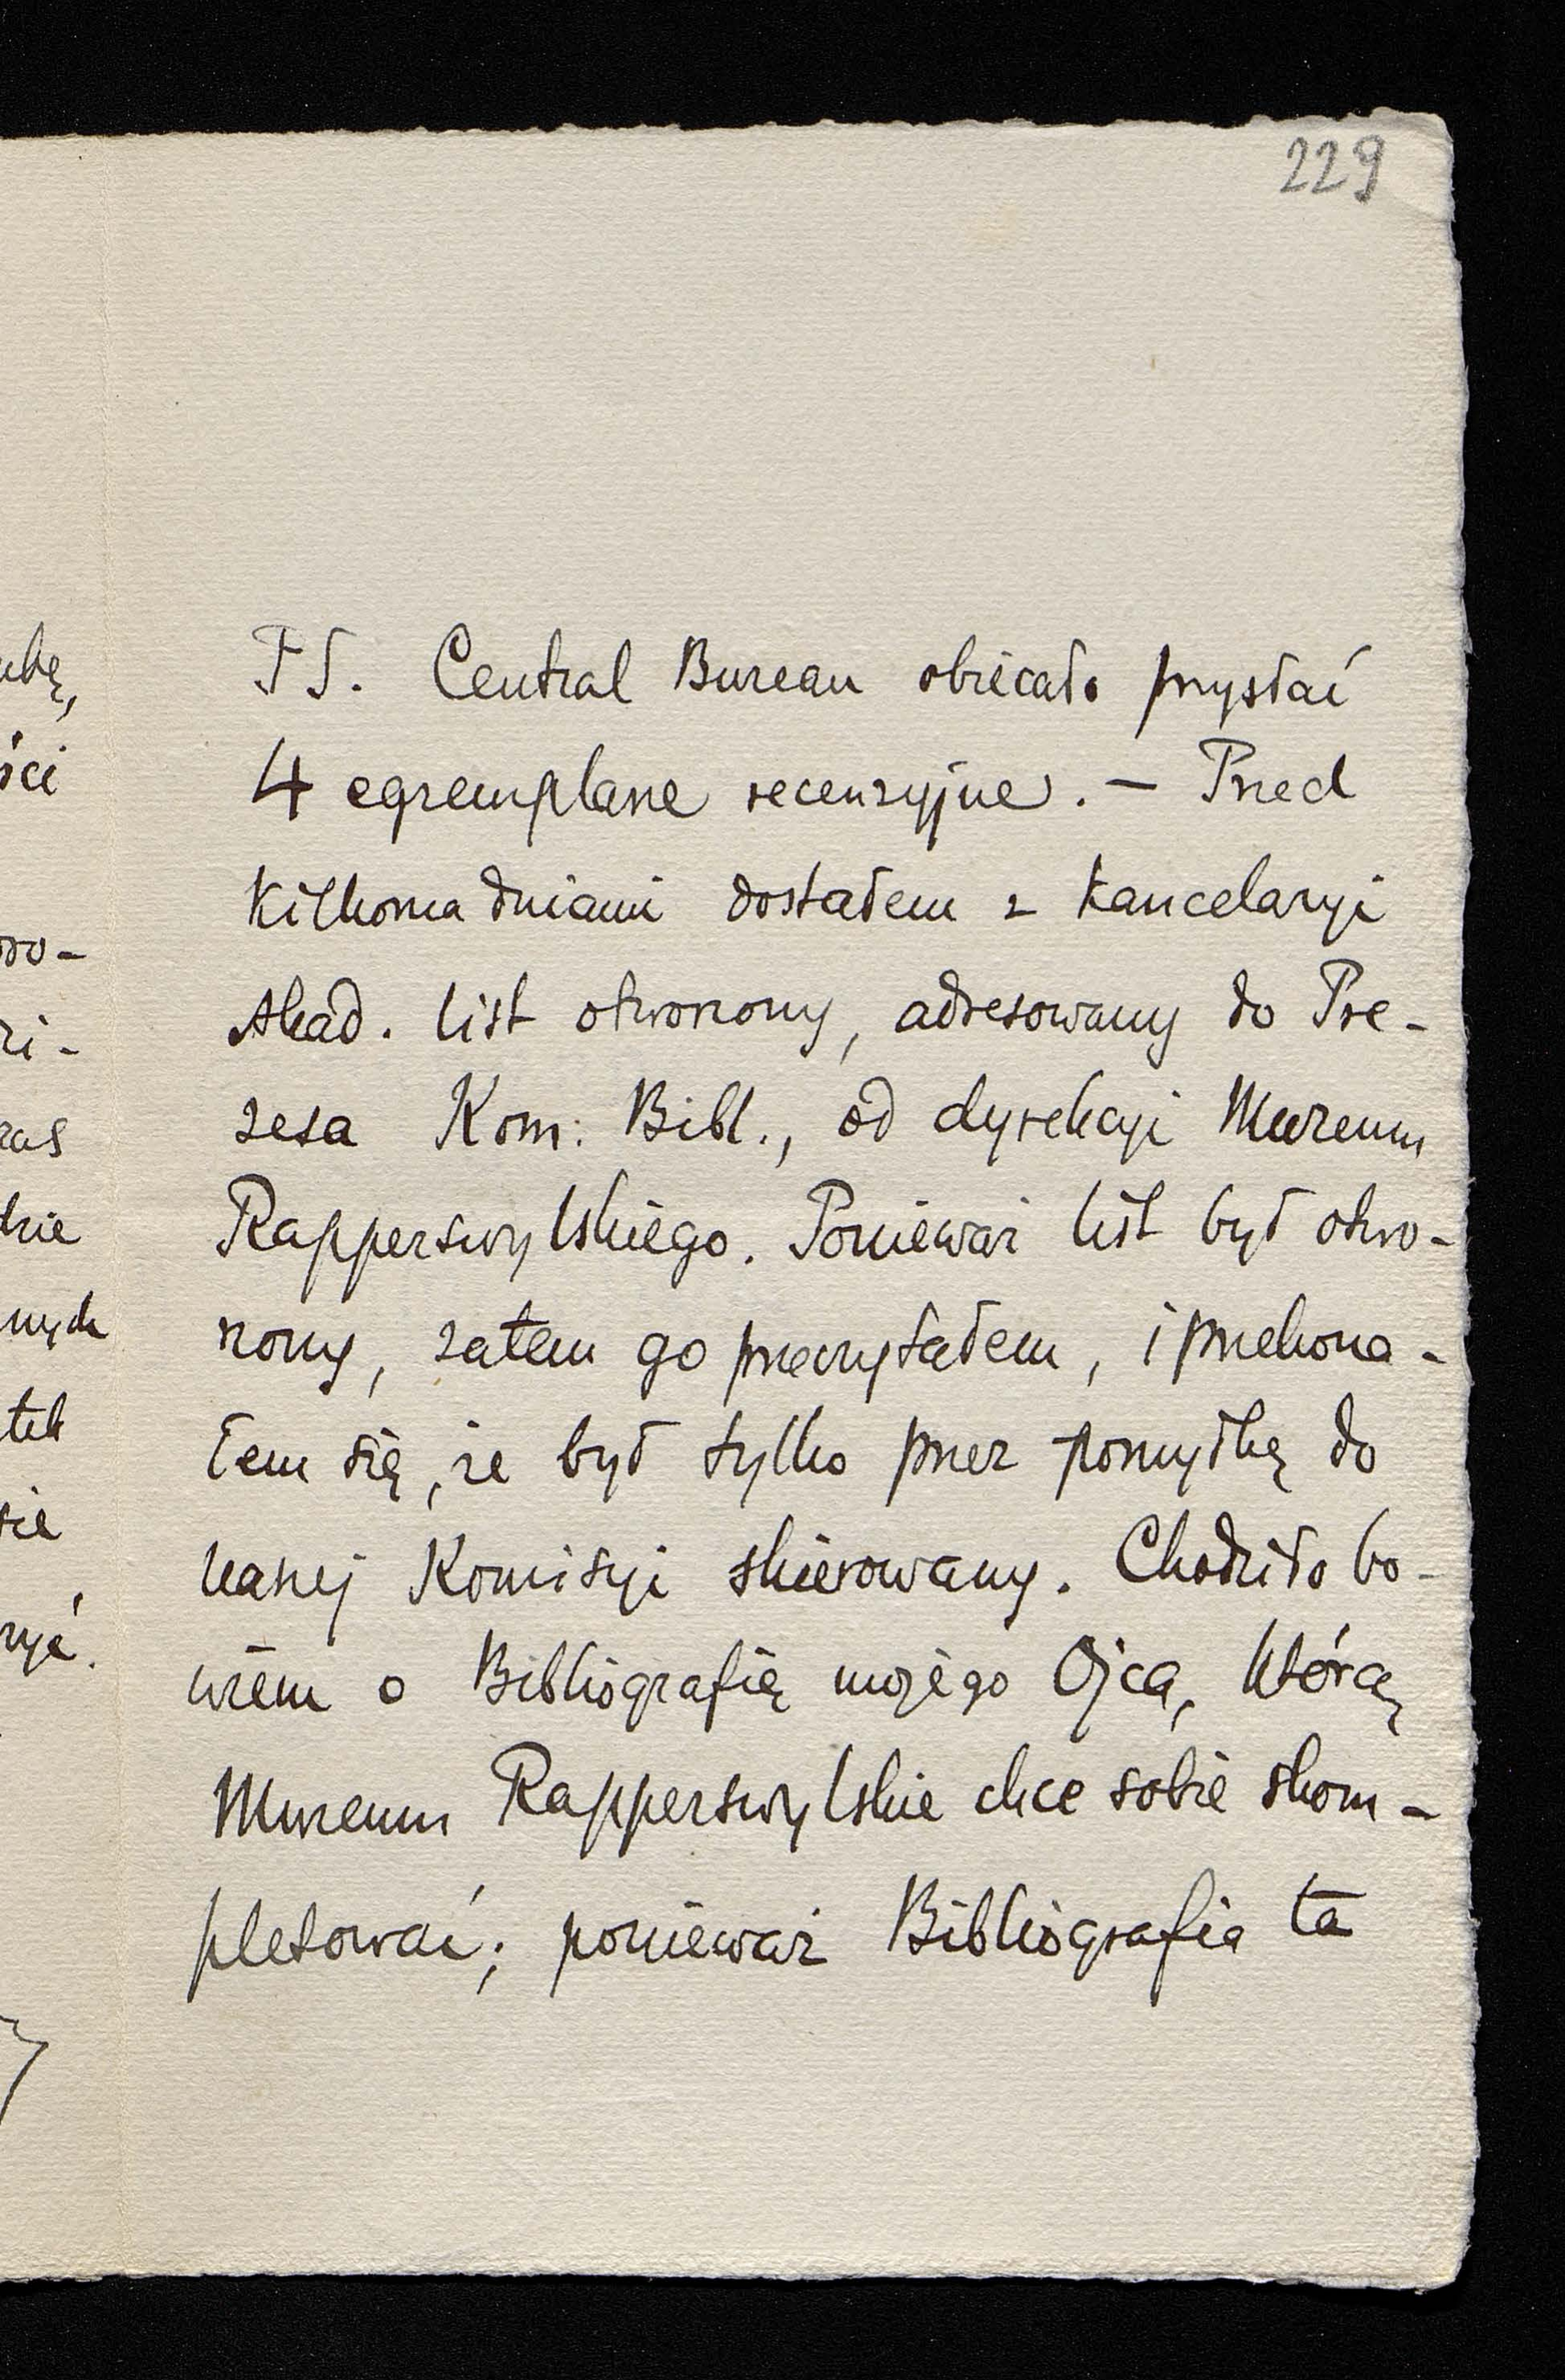 229
PS. Central Bureau obiecało przysłać
4 egzemplarze recenzyjne. – Przed
kilkoma dniami dostałem z kancelaryi
Akad. list otworzony, adresowany do Pre-
zesa Kom. Bibl., od dyrekcyi Muzeum
Rapperswylskiego. Ponieważ list był otwo-
rzony, zatem go przeczytałem, i przekona-
łem się, że był tylko przez pomyłkę do
naszej Komisyi skierowany. Chodziło bo-
wiem o Bibliografię mojego Ojca, którą
Muzeum Rapperswylskie chce sobie skom-
pletować; ponieważ Bibliografia ta